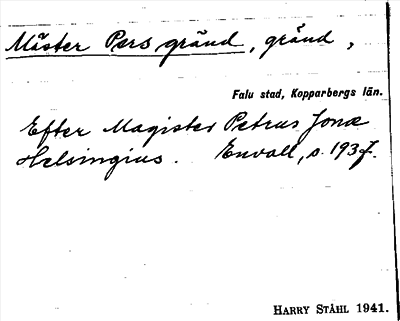 Mäster Pers gränd, gränd,
Falu stad, Kopparbergs län.
Efter Magister Petrus Jonæ
Helsingius. Envall, s. 193f.
HARRY STÅHL 1941.